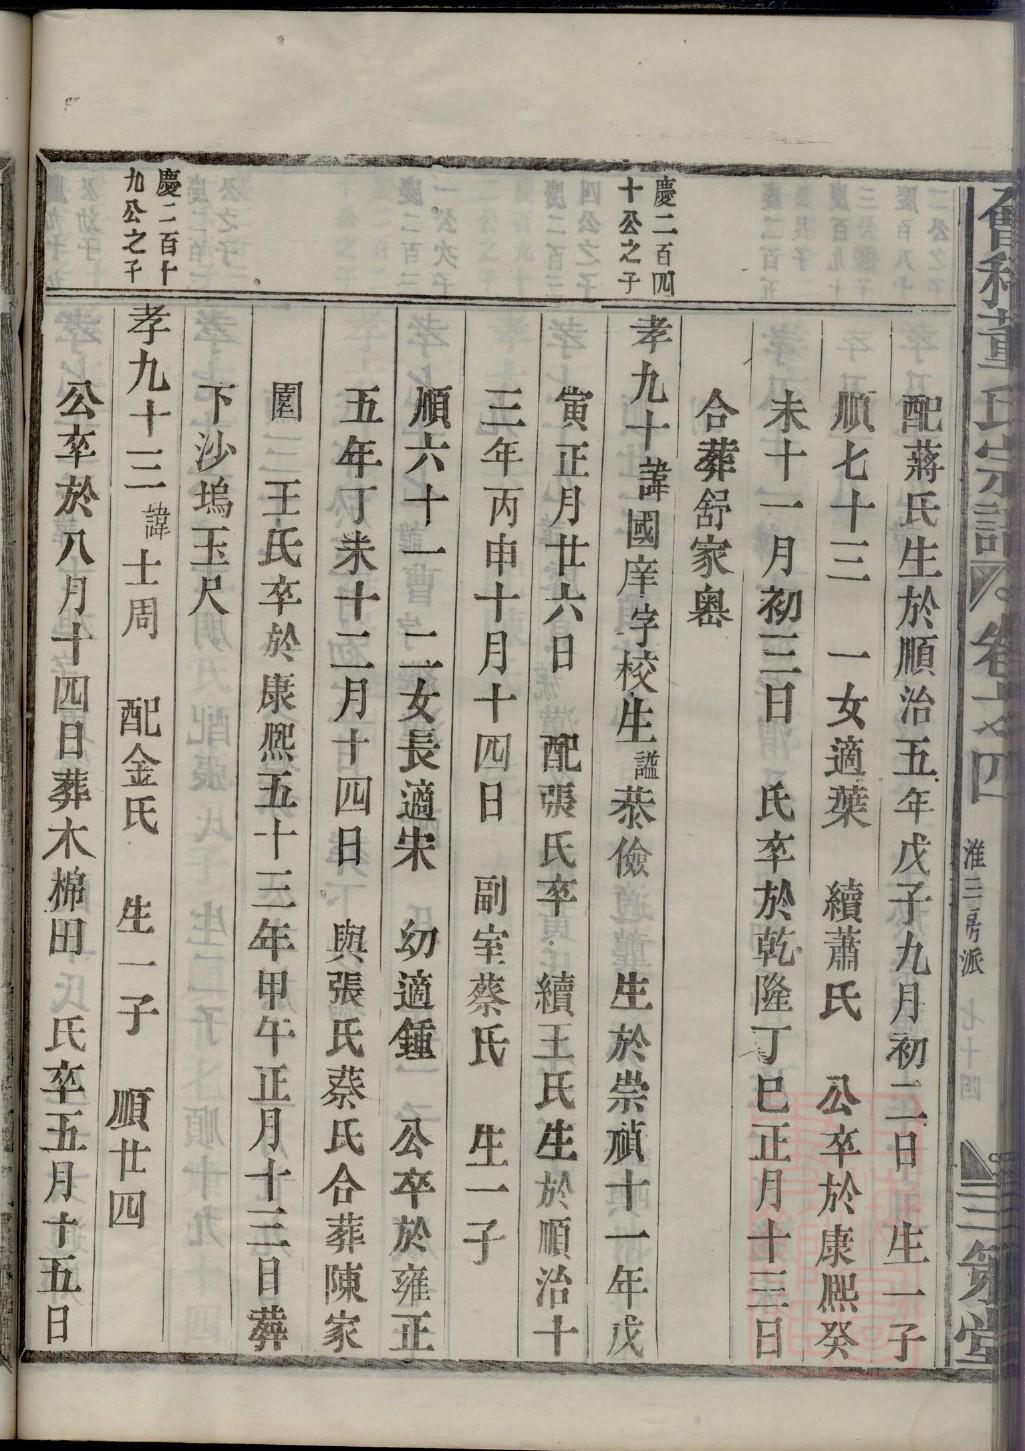 會稽董氏宗譜 卷十四
淮三房派 七十四
三策堂
配蔣氏生於順治五年戊子九月初二日 生一子
順七十三 一女適葉 續蕭氏 公卒於康熙癸
未十一月初三日 氏卒於乾隆丁巳正月十三日
合葬舒家嶴
慶二百四
十公之子
孝九十諱國庠字校生謚恭儉 生於崇禎十一年戊
寅正月廿六日 配張氏卒 續王氏生於順治十
三年丙申十月十四日 副室蔡氏 生一子
順六十一 二女長適宋 幼適鍾 公卒於雍正
五年丁未十二月十四日 與張氏蔡氏合葬陳家
園 王氏卒於康熙五十三年甲午正月十三日葬
下沙塢玉尺
慶二百十
九公之子
孝九十三諱士周 配金氏 生一子 順廿四
公卒於八月十四日葬木棉田 氏卒五月十五日